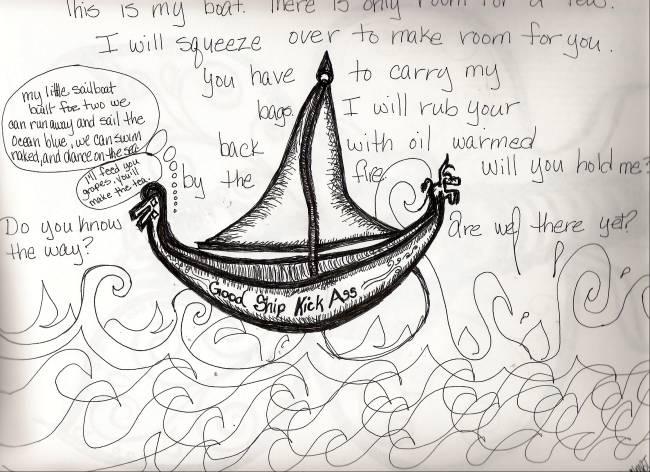 This is my boat. There is only room for a few.
I will squeeze over to make room for you.
you have to carry my
bags. I will rub your
back with oil warmed
by the fire. will you hold me?
my little sailboat
built for two we
can run away and sail the
ocean blue, we can swim
naked, and dance on the sea
I'll feed you
grapes, you'll
make the tea.
Do you know
the way?
are we there yet?
Good Ship Kick Ass